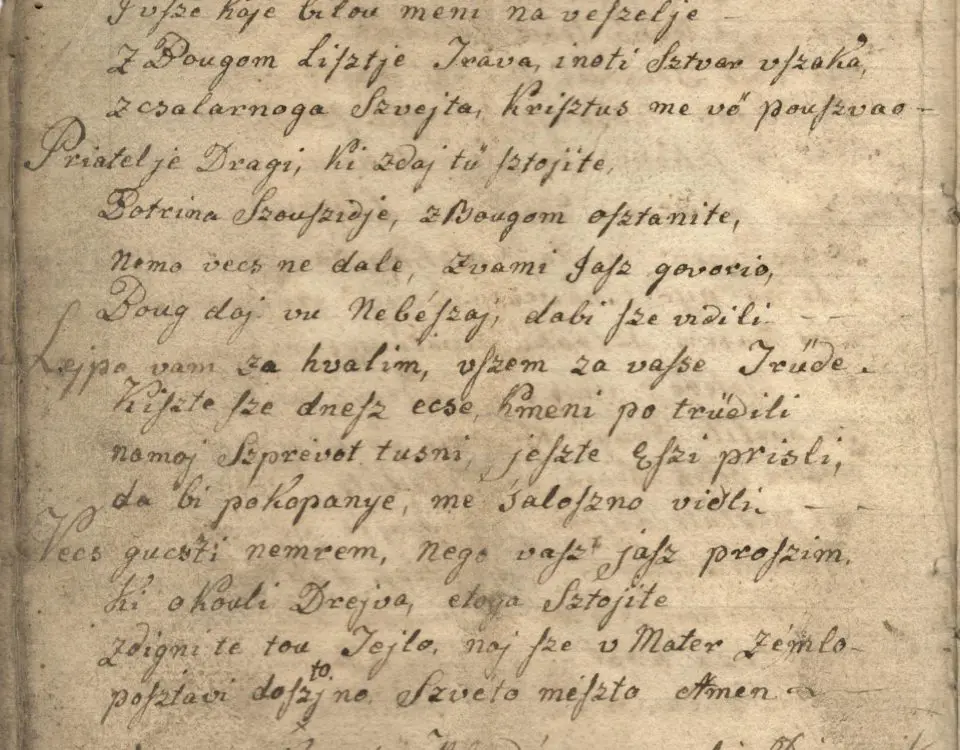 I vsze koje bilou meni na veszelje –
Z Bougom Lisztje Trava, inoti Sztvar vszaka,
zcsalarnoga Szvejta, Krisztus me vö pouszvao –
Priatelje Dragi, ki zdaj tü sztojite,
Botrina Szouszidje, z Bougom osztanite,
Nemo vecs ne dale, zvami Jasz govorio,
Boug daj vu Nebészaj, dabi sze vidili – –
Lejpo vam za hvalim, vszem za vasse Trüde.
Kiszte sze dnesz ecse, kmeni po trüdili
namoj Szprevot tusni, jeszte Eszi prisli,
da bi pokopanye, me saloszno vidli. – –
Vecs gucsti nemrem, nego vasz jasz proszim,
Ki okouli Drejva, etoga Sztojite
Zdignite tou Tejlo, naj sze v Mater Zémlo –
posztavi dosztojno Szveto meszto Amen –